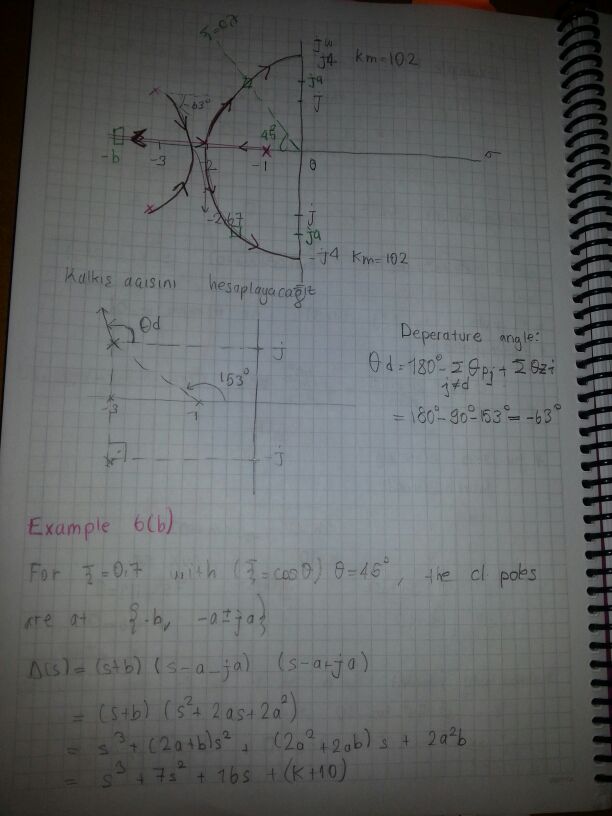 ξ=0.7
jω
j4 Km=102
ja
j
-63°
45°
-b -3 -2 -1 0 σ
-2.67
j
ja
-j4 Km=102
Kalkış açısını hesaplayacağız
θd
j
153°
-3 -1
-j
Deperature angle:
θd = 180° - Σ θpj + Σ θzi
j≠d
= 180° - 90° - 153° = -63°
Example 6(b)
For ξ = 0.7 with (ξ = cosθ) θ = 45°, the cl poles
are at {-b, -a ± ja}
Δ(s) = (s+b) (s-a-ja) (s-a+ja)
= (s+b) (s² + 2as + 2a²)
= s³ + (2a+b)s² + (2a² + 2ab) s + 2a²b
= s³ + 7s² + 16s + (K+10)